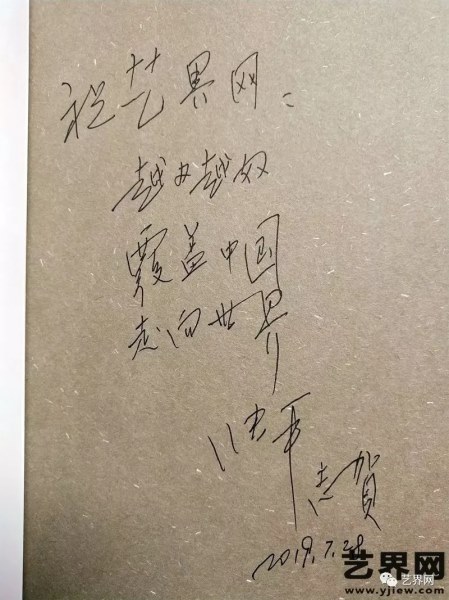 祝艺界网：
越办越好
覆盖中国
走向世界
志賀
2019.7.28
艺界网
艺界网
www.yjiew.com